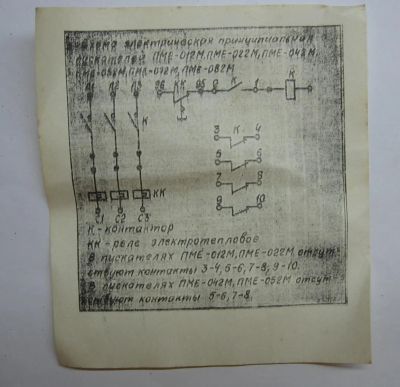 Схема электрическая принципиальная
пускателей ПМЕ-012М, ПМЕ-022М, ПМЕ-042М,
ПМЕ-052М, ПМЕ-072М, ПМЕ-082М
Л1 Л2 Л3 96 КК 95 0 К 1 К
К
3 К 4
5 6
7 8
КК 9 10
С1 С2 С3
К - контактор
КК - реле электротепловое
В пускателях ПМЕ-012М, ПМЕ-022М отсут-
ствуют контакты 3-4, 5-6, 7-8, 9-10.
В пускателях ПМЕ-042М, ПМЕ-052М отсут-
ствуют контакты 5-6, 7-8.